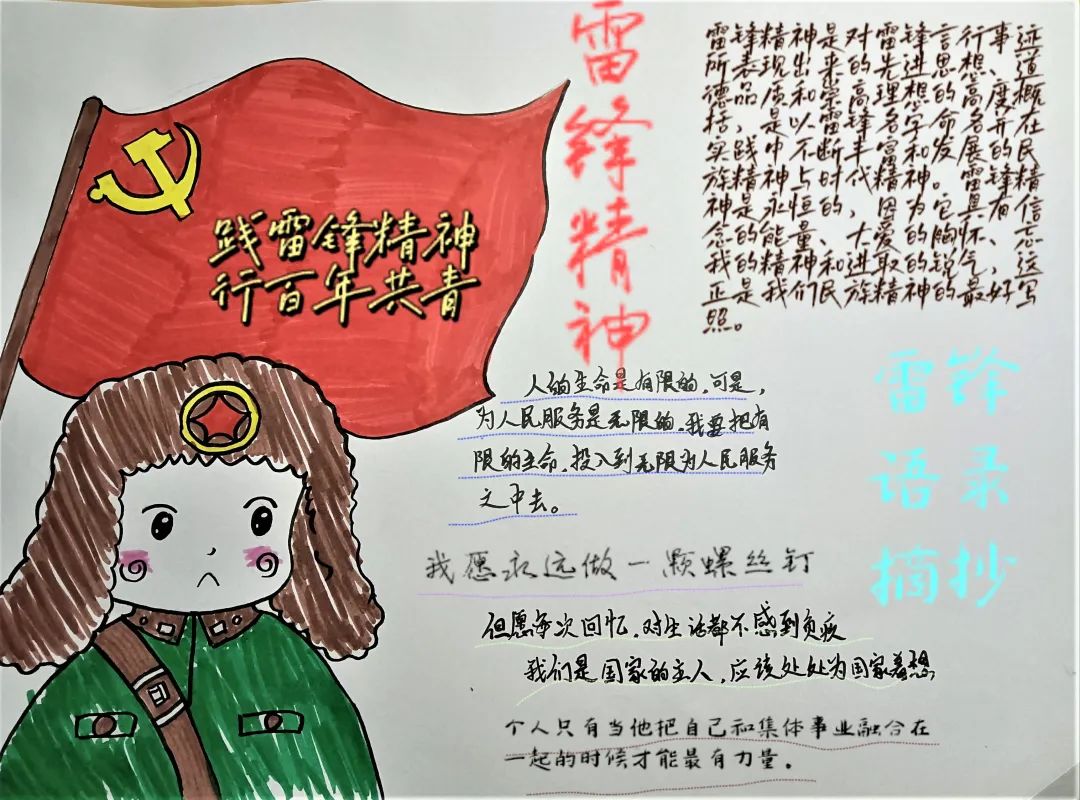 践雷锋精神
行百年共青
雷锋精神
雷锋精神是对雷锋言行事迹
所表现出来的先进思想、道
德品质和崇高理想的高度概
括，是以雷锋名字命名并在
实践中不断丰富和发展的民
族精神与时代精神。雷锋精
神是永恒的，因为它具有信
念的能量、大爱的胸怀、忘
我的精神和进取的锐气，这
正是我们民族精神的最好写
照。
雷锋
语录
摘抄
人的生命是有限的，可是，
为人民服务是无限的，我要把有
限的生命，投入到无限为人民服务
之中去。
我愿永远做一颗螺丝钉
但愿每次回忆，对生活都不感到负疚
我们是国家的主人，应该处处为国家着想
个人只有当他把自己和集体事业融合在
一起的时候才能最有力量。